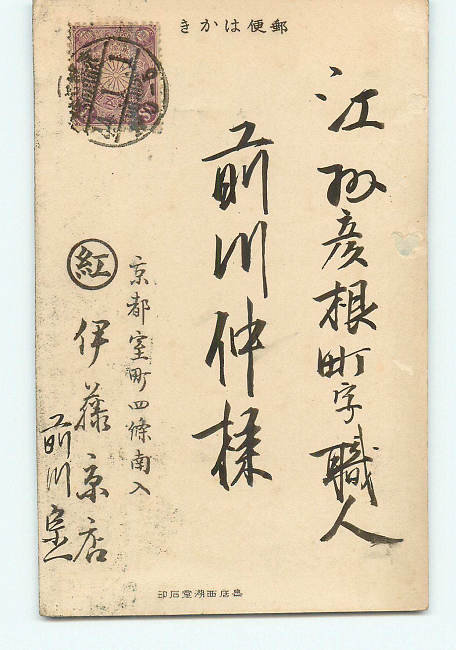 郵便はかき
江州彦根町字職人
前川仲様
京都室町四條南入
紅
伊藤京店
前川